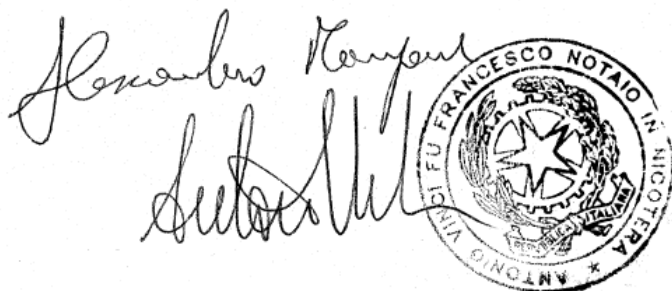 Alessandro
Antonio Vinci
ANTONIO VINCI FU FRANCESCO NOTAIO IN NICOTERA *
REPVBBLICA ITALIANA